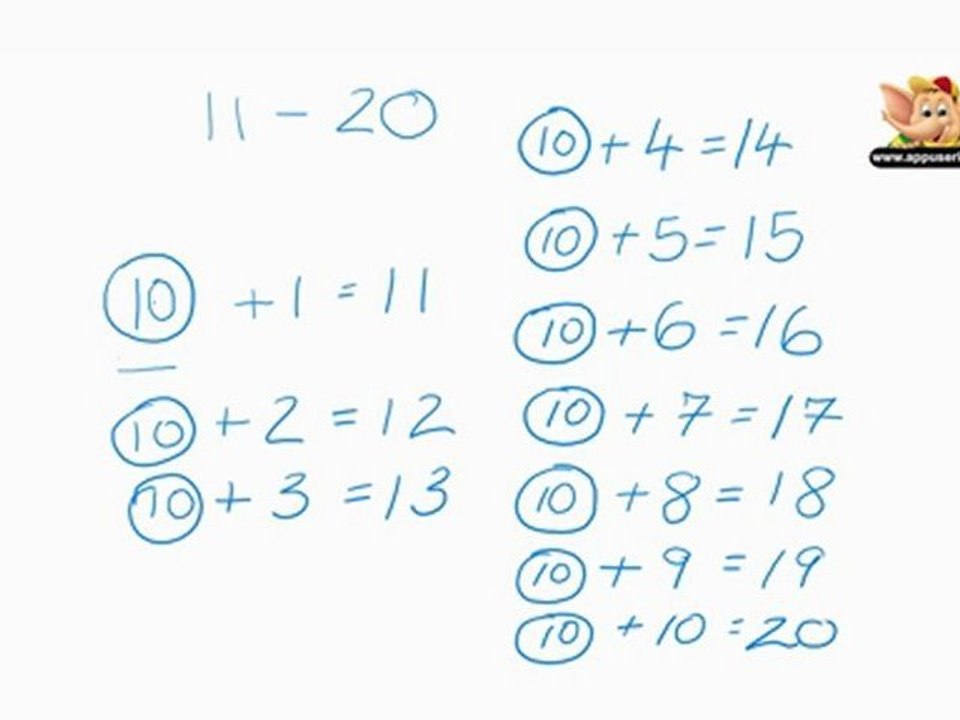 11 - 20
10 + 1 = 11
10 + 2 = 12
10 + 3 = 13
10 + 4 = 14
10 + 5 = 15
10 + 6 = 16
10 + 7 = 17
10 + 8 = 18
10 + 9 = 19
10 + 10 = 20